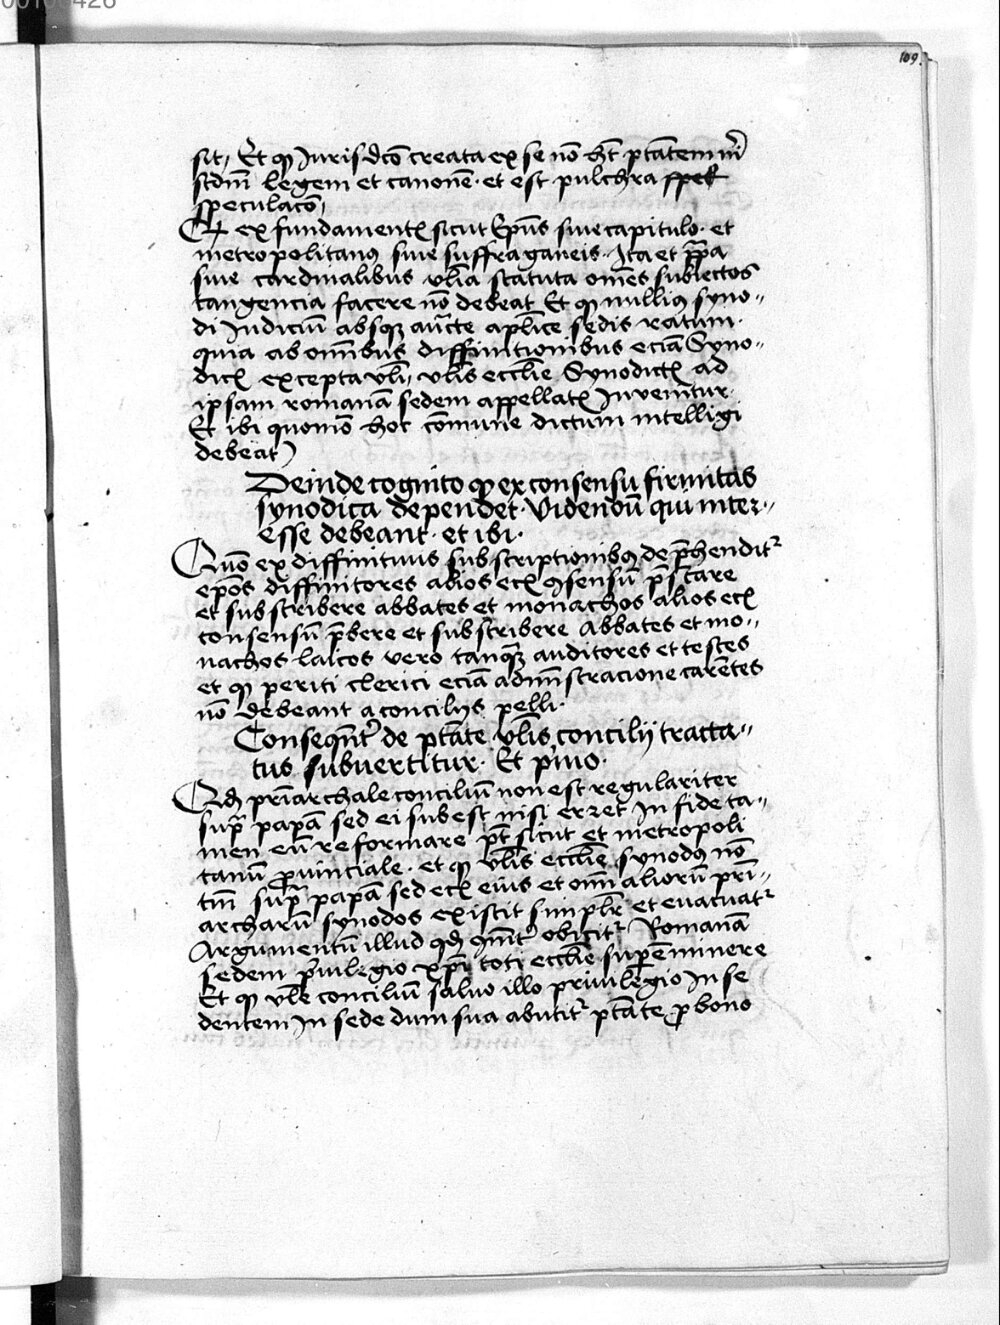 109.
sit, Et qꝫ Jurisdcō creata ex se nō hꝫt ptātem nī
scdm̄ legem et canonē · et est pulchra spek
speculacō,
ex fundamentꝭ sicut Ep̄us sine capitulo · et
metropolitanꝰ sine suffraganeis. Ita et pp̄a
sine cardinalibus vl̄ia statuta om̄es subiectos
tangencia facere nō debeat Et qꝫ nulliꝰ syno-
di Judiciū absqꝫ auc̄te apl̄ice sedis ratum ·
quia ab om̄ibus diffinitionibus eciā Syno-
dicꝭ excepta vl̄i, vl̄is eccl̄ie Synodicꝭ ad
ip̄sam romanā sedem appellacꝭ Jnvenitur
Et ibi quomō hoc cōmune dictum intelligi
debeat
Deinde cognito qꝫ ex consensu firmitas
synodica dependet · Videndū qui inter-
esse debeant · et ibi ·
Quō ex diffinitiuis subscriptionibꝰ dep̄henditꝛ
ep̄os diffinitores alios ecꝭ ꝯsensū p̄stare
et subscribere abbates et monachos alios ecꝭ
consensū p̄bere et subscribere Abbates et mo-
nachos laicos vero tanqꝫ auditores et testes
et qꝫ periti clerici eciā admī̄stracione carētes
nō debeant a concilijs pelli ·
Conseqn̄tꝛ de ptāte vl̄is concilij tracta-
tus subuertitur · Et p̄mo ·
Qd̄ pr̄iarchale conciliū non est regulariter
sup̄ papā sed ei subest nisi erret Jn fide ta-
men eū reformare pt̄ sicut et metropoli
tanū ꝓuinciale · et qꝫ vl̄is eccl̄ie synodꝰ nō
tm̄ sup̄ papā sed ecꝭ eius et om̄ aliorū pr̄i-
archarū synodos existit simpl̄r et euacuatꝛ
Argumentū illud qd̄ ꝯmꝛ obicitꝛ Romanā
sedem p̄uilegio xp̄i toti eccl̄ie sup̄eminere
Et qꝫ vl̄e conciliū saluo illo priuilegio Jn se
dentem Jn sede dum sua abutitꝛ ptāte ꝓ bono